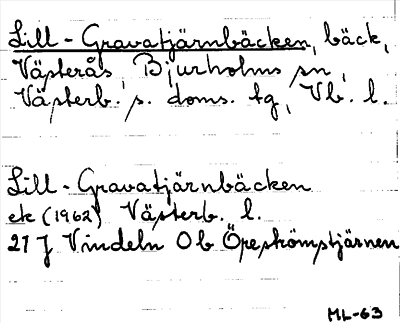 Lill-Gravatjärnbäcken, bäck,
Västerås, Bjurholms sn,
Västerb. s. doms. tg, Vb. l.
Lill-Gravatjärnbäcken
ek (1962) Västerb. l.
21 J Vindeln 0 b Öreströmstjärnen
ML-63